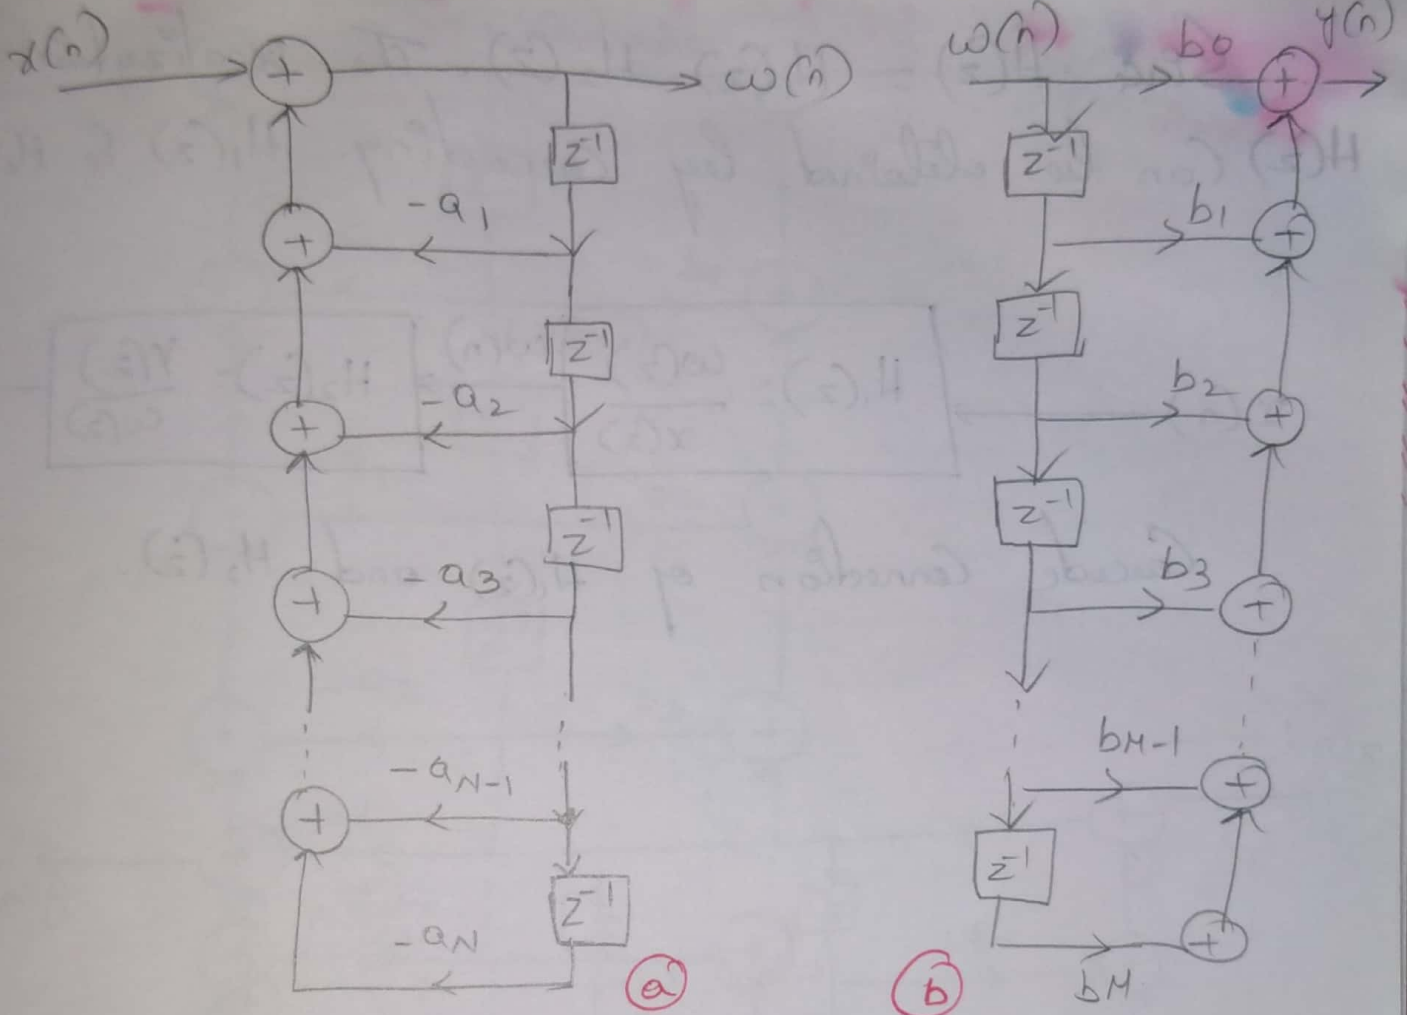 x(n) + ω(n)
z⁻¹
-a₁
+
z⁻¹
-a₂
+
z⁻¹
-a₃
+
-a_N-1
+
z⁻¹
-a_N
a
ω(n) b₀ y(n)
+
z⁻¹
b₁
+
z⁻¹
b₂
+
z⁻¹
b₃
+
b_M-1
+
z⁻¹
+
b_M
b